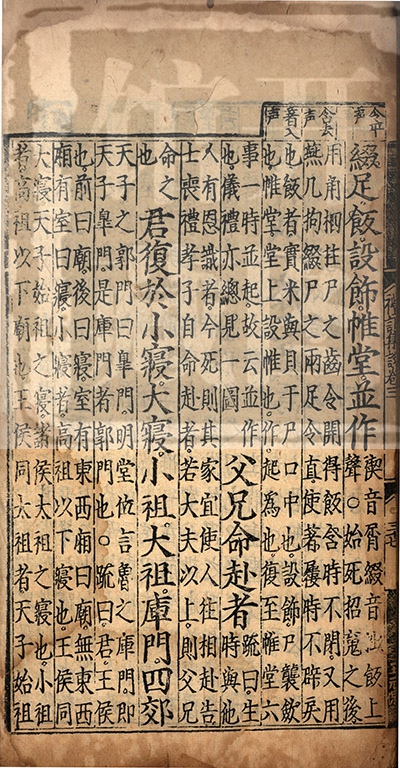 令平声
綴足飯設飾帷堂並作
楔音屑綴音拙飯上
聲○始死招魂之後
令去声
用角柶拄尸之齒令開得飯含時不閉又用
燕几拘綴尸之兩足令直使著屨時不辟戾
著入声
也飯者實米與貝于尸口中也設飾尸襲斂
也帷堂堂上設帷也作起為也復至帷堂六
事一時並起故云並作
也儀禮亦總見一圖
父兄命赴者
疏曰生
時與他
人有恩識者今死則其家宜使人往相赴告
士喪禮孝子自命赴者若大夫以上則父兄
命之
也
君復於小寢大寢小祖大祖庫門四郊
天子之郭門曰皐門明堂位言魯之庫門即
天子皐門是庫門者郭門也○疏曰君王侯
也前曰廟後曰寢室有東西廂曰廟無東西
廂有室曰寢小寢者高祖以下寢也王侯同
大寢天子始祖之寢諸侯太祖之寢也小祖
者高祖以下廟也王侯同大祖者天子始祖